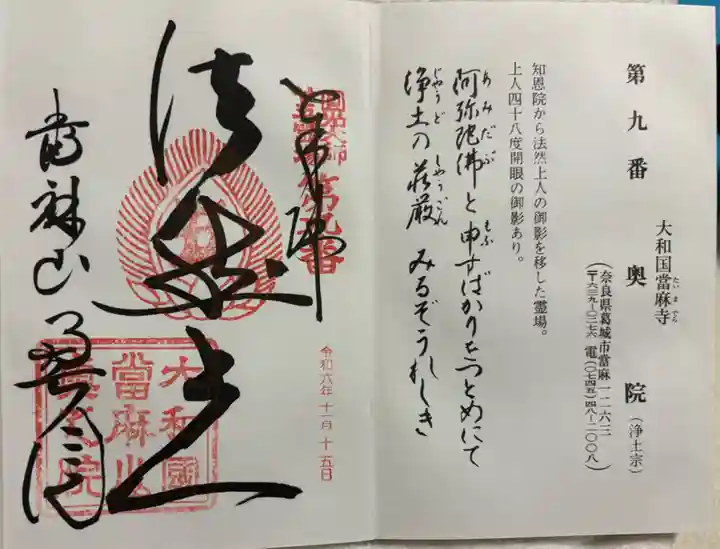 第九番 奥院(浄土宗)
大和国當麻寺
たいまでら
(奈良県葛城市當麻一二六三
〒六三九-〇二七六 電(〇七四五)四八-二〇〇八)
知恩院から法然上人の御影を移した霊場。
上人四十八度開眼の御影あり。
阿弥陀佛と申すばかりをつとめにて
あみだぶ もふ
浄土の荘厳みるぞうれしき
じやうど しやうごん
第九番
法然上人
當麻山 奥之院
大和國
當麻山
奥之院
令和六年十一月十五日